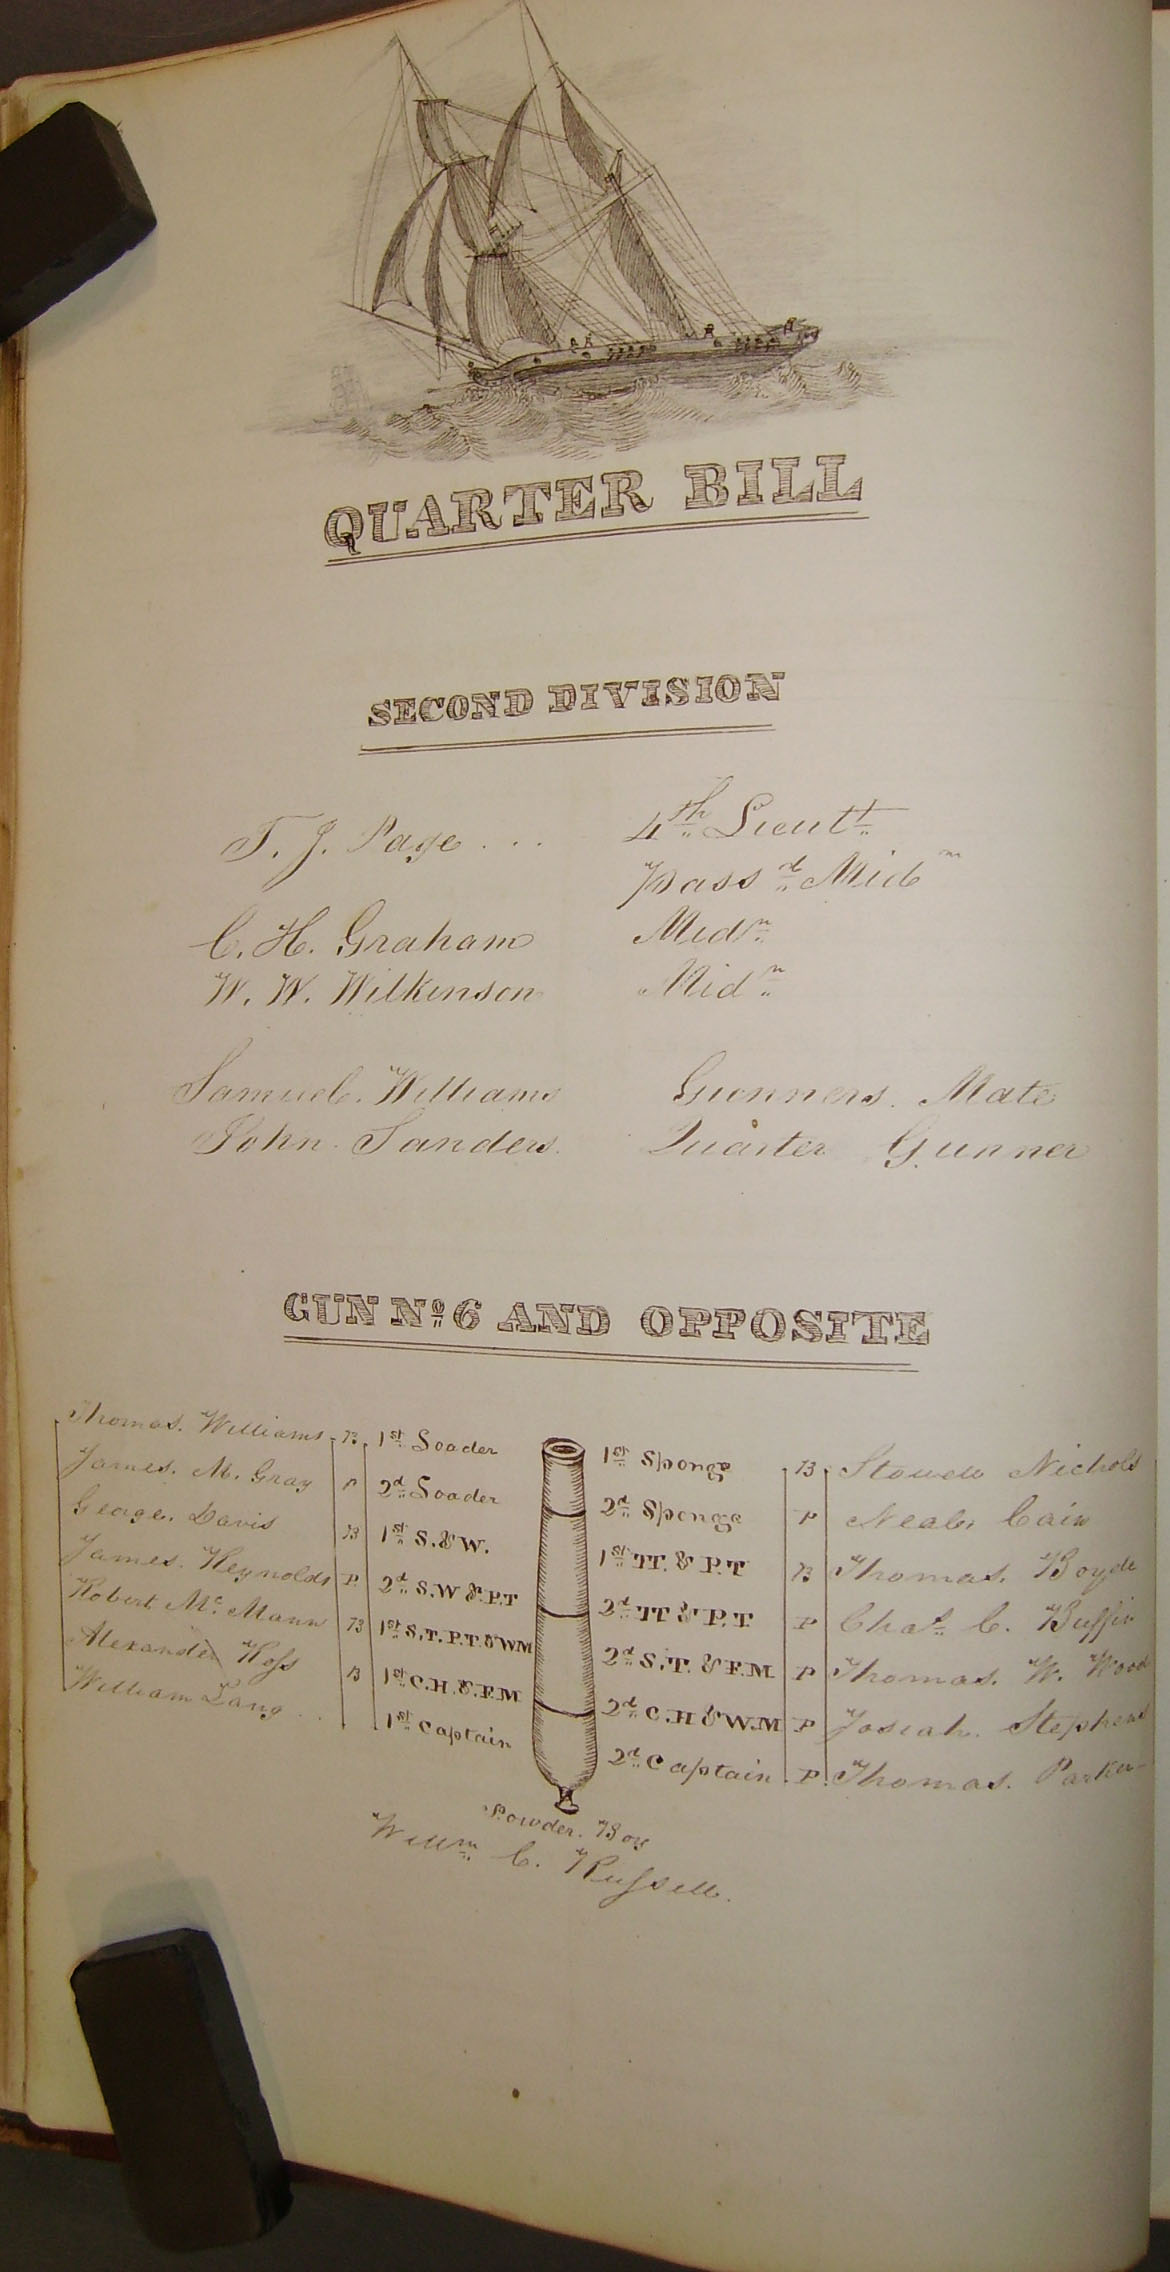 QUARTER BILL
SECOND DIVISION
T. J. Page . . . 4th Lieutt
Passd Midm
C. H. Graham Midn
W. W. Wilkinson Midn
Samuel. Williams Gunners. Mate
John. Sanders. Quarter Gunner
GUN No 6 AND OPPOSITE
Thomas. Williams B 1st Loader 1st Sponge B Nichols
James. M. Gray P 2d Loader 2d Sponge P Neale Cain
George. Davis B 1st S. & W. 1st TT. & P.T B Thomas. Boyde
James. Reynolds P. 2d S.W & P.T 2d TT & P.T P Chas. C. Buffin
Robert Mc. Mann B 1st S.T. P.T. & WM 2d S.T. & F.M P Thomas. W. Wood
Alexander Ross B 1st C.H. & F.M 2d C.H & W.M P Josiah. Stephens
William Lang . . 1st Captain 2d Captain P. Thomas. Parker
Powder. Boy
Willm C. Russell.